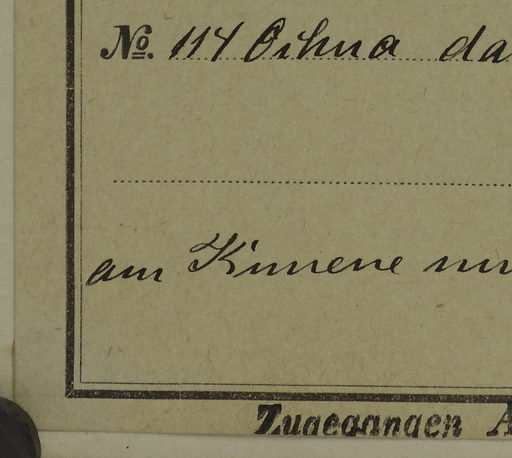 No. 114 Oihna da
am Kunene
Zugegangen A